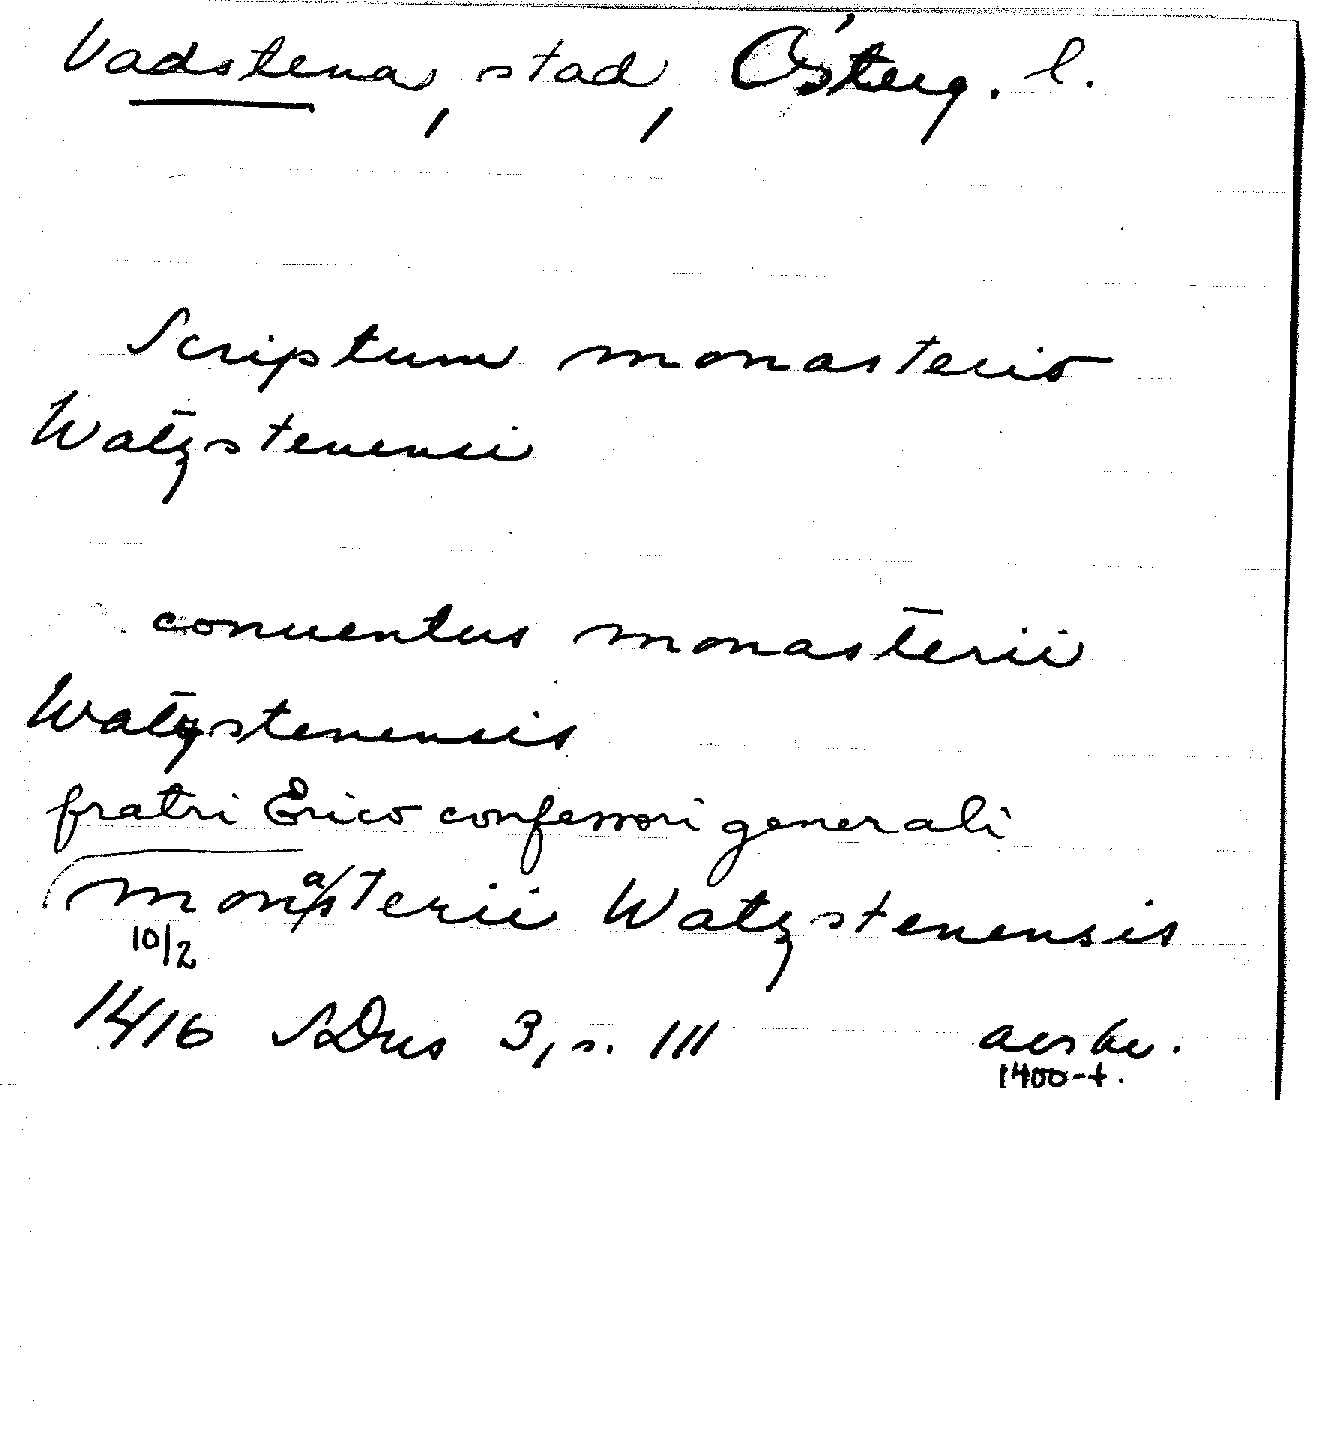 Vadstena, stad, Österg. l.
Scriptum monasterio
Watzstenensi
conuentus monasterii
Watzstenensis
fratri Erico confessori generali
monasterii Watzstenensis
10/2
1416 SDns 3, s. 111 avskr.
1400-t.